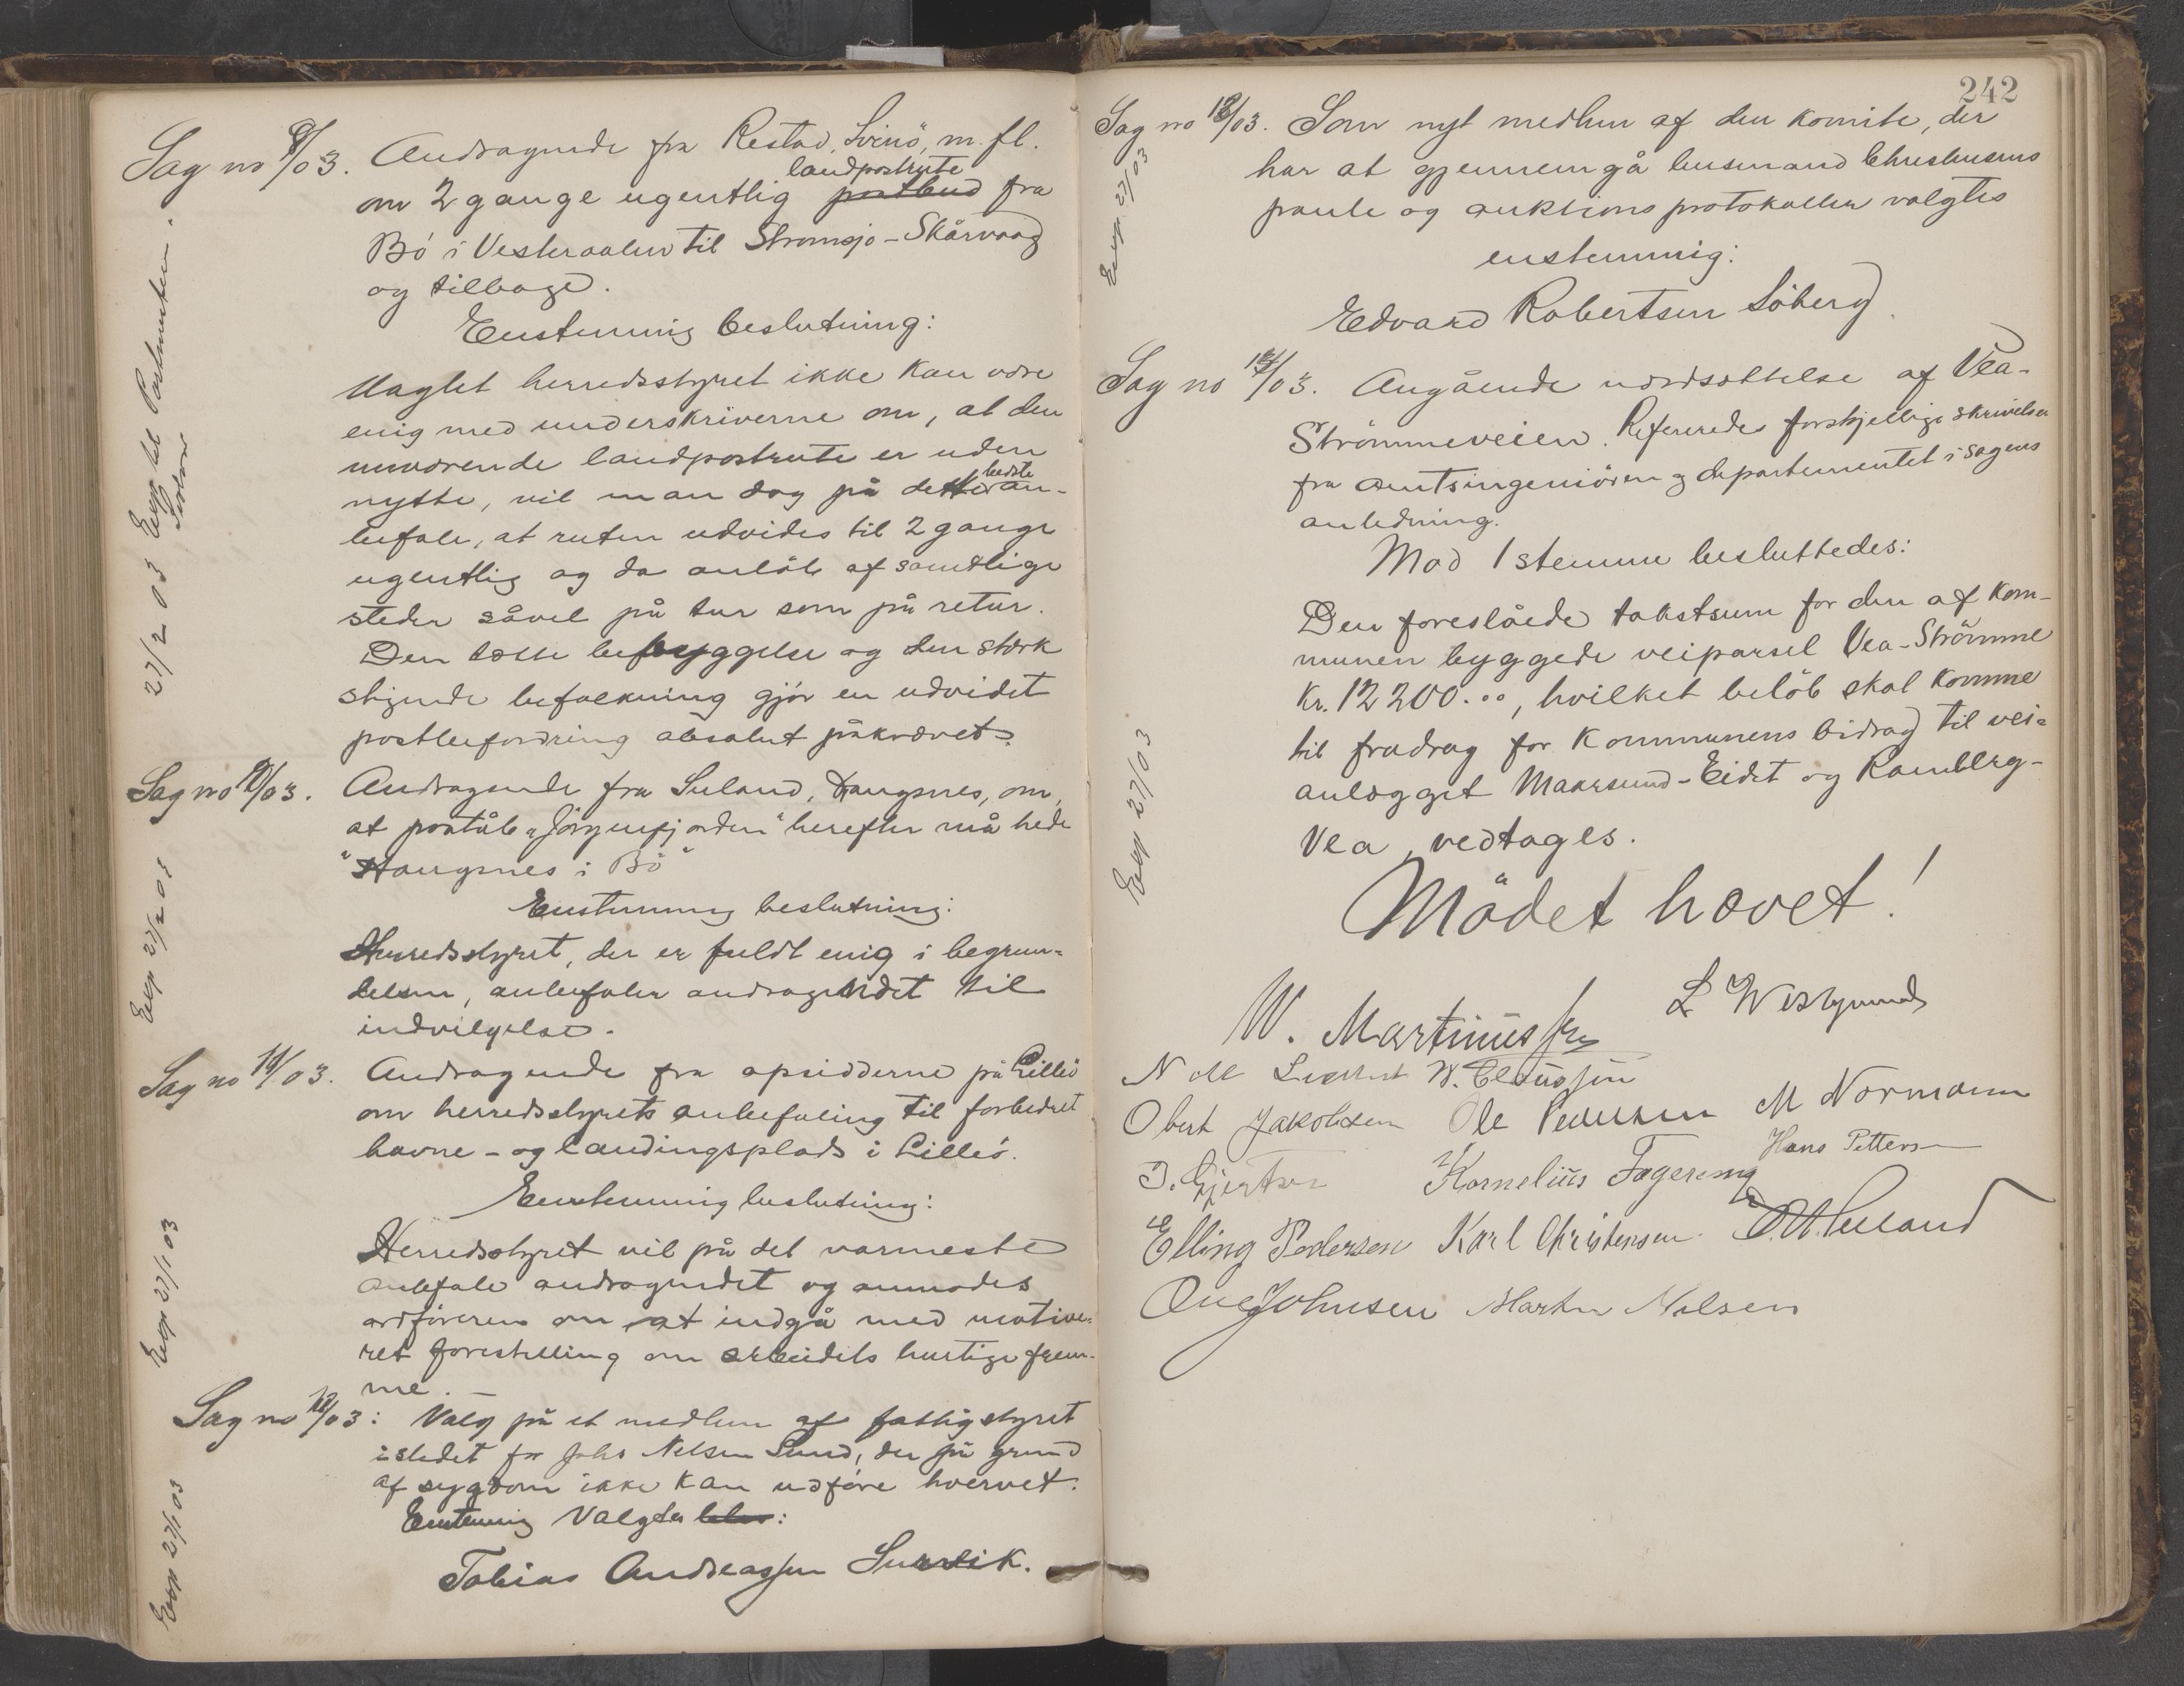 Sag no 9/03. Andragende fra Restad, Svinö, m. fl.
landpostrute
om 2 gange ugentlig postbud fra
Bö i Vesteraalen til Strømsjö - Skårvaag
og tilbage.
Enstemmig beslutning:
Uagtet herredsstyret ikke kan være
enig med underskriverne om, at den
nuværende landpostrute er uden
nytte, vil man dog på det bedste an-
befale, at ruten udvides til 2 gange
ugentlig og da anlöb af samtlige
steder såvel på tur som på retur.
Den tætte bebyggelse og den stærk
stigende befolkning gjör en udvidet
postbefordring absolut påkrævet.
27/2 03 Exp til Postmesteren i
Sag no 10/03. Andragende fra Suland, Haugsnes, om,
at poståb. "Jörgenfjorden" herefter må hede
"Haugsnes i Bö"
Enstemmig beslutning:
Herredsstyret, der er fuldt enig i begrun-
delsen, anbefaler andragendet til
indvilgelse.
Exp 27/2 03
Sag no 11/03. Andragende fra opsidderne på Lillö
om herredsstyrets anbefaling til forbedret
havne- og landingsplads i Lillö.
Enstemmig beslutning:
Herredsstyret vil på det varmeste
anbefale andragendet og anmodes
ordföreren om at indgå med motive-
ret forestilling om arbeidets hurtige frem-
me.
Exp 27/1 03
Sag no 12/03: Valg på et medlem af fattigstyret
istedet for Johs Nelsen Lund, der på grund
af sygdom ikke kan udföre hvervet.
Enstemmig Valgtes blev:
Tobias Andreassen Survik.
Exp 27/1 03
242
Sag no 13/03. Som nyt medlem af den komite, der
har at gjennemgå lensmand Christensens
pante og auktionsprotokoller valgtes
enstemmig:
Edvard Robertsen Söberg.
Exp. 27/03
Sag no 14/03. Angående værdsættelse af Vea-
Strömmeveien. Refereredes forskjellige skrivelser
fra amtsingeniören og departementet i sagens
anledning.
Mod 1 stemme besluttedes:
Den foreslåede takstsum for den af kom-
munen byggede veiparsel Vea-Strömme
kr. 12 200.00, hvilket belöb skal komme
til fradrag for kommunens bidrag til vei-
anlægget Maarsund-Eidet og Ramberg-
Vea, vedtages.
Exp 27/03
Mödet hævet!
W. Martinussen
N M W. Clausen
Obert Jakobsen Ole Pedersen M Normann
Hans Petters
J. Gjertsen Kornelius Fagereng
Elling Pedersen Karl Christensen
Ove Johnsen Martin Nilsen